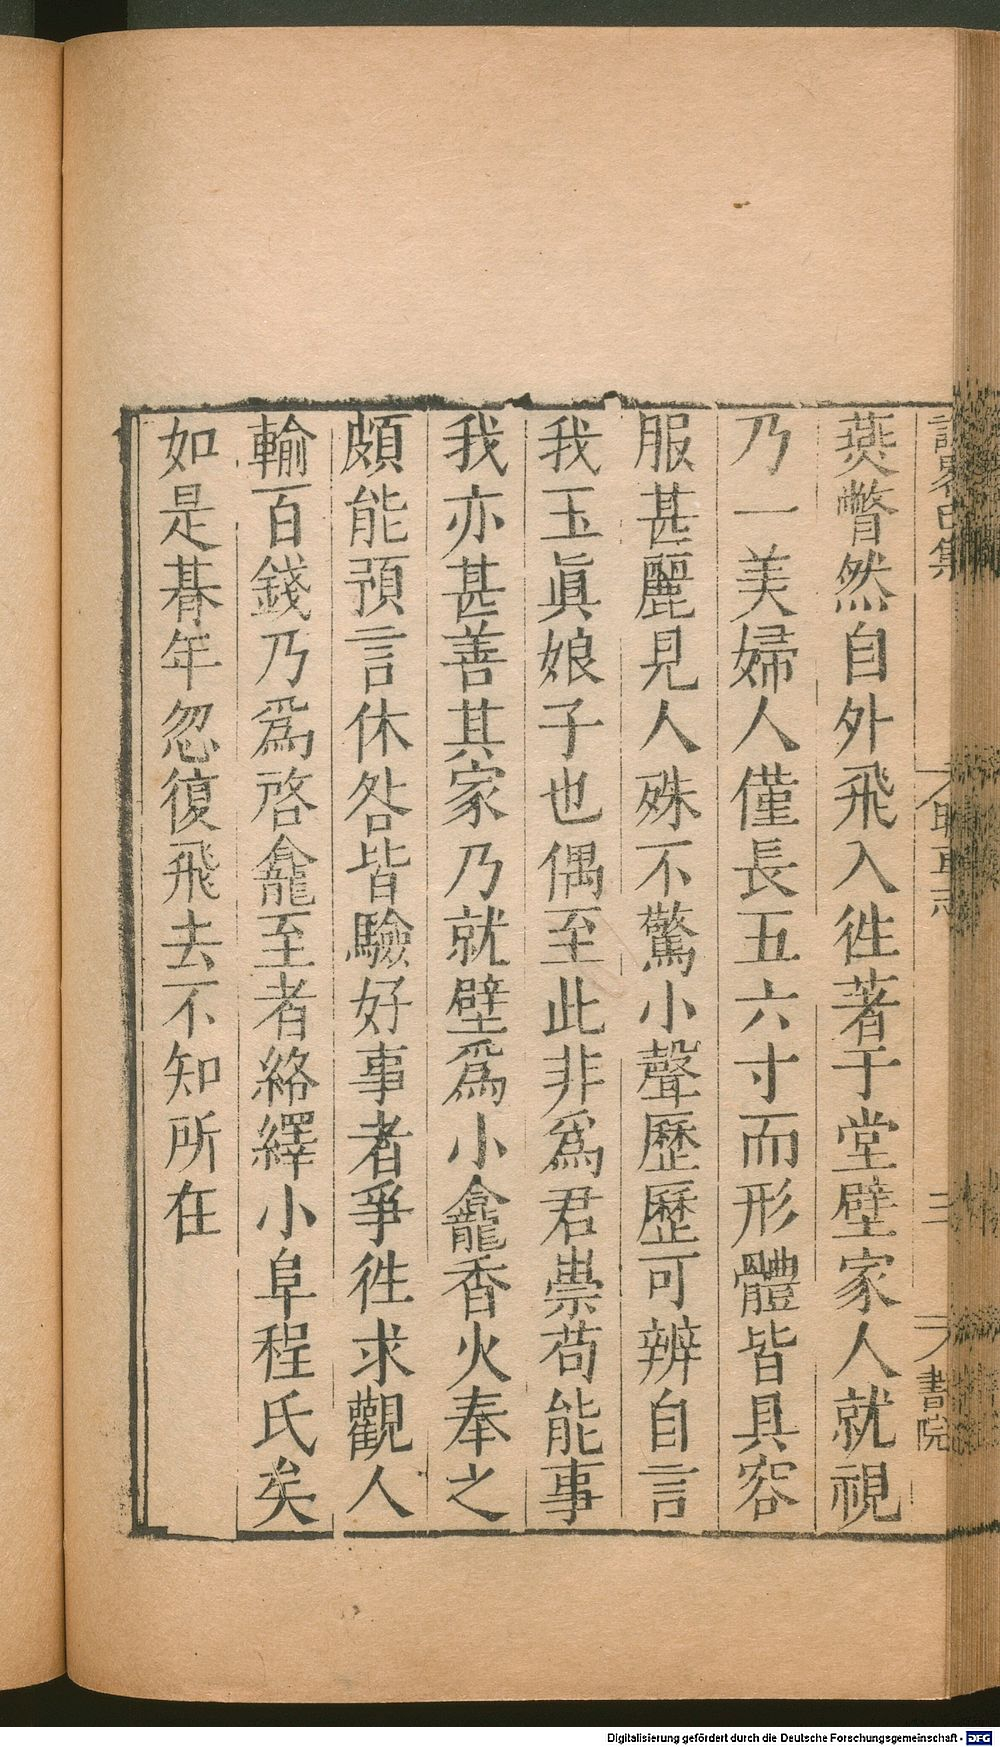 燕瞥然自外飛入徃著于堂壁家人就視
乃一美婦人僅長五六寸而形體皆具容
服甚麗見人殊不驚小聲歷歷可辨自言
我玉眞娘子也偶至此非爲君祟苟能事
我亦甚善其家乃就壁爲小龕香火奉之
頗能預言休咎皆驗好事者爭徃求觀人
輸百錢乃爲啓龕至者絡繹小阜程氏矣
如是朞年忽復飛去不知所在
三
書院
Digitalisierung gefördert durch die Deutsche Forschungsgemeinschaft - DFG